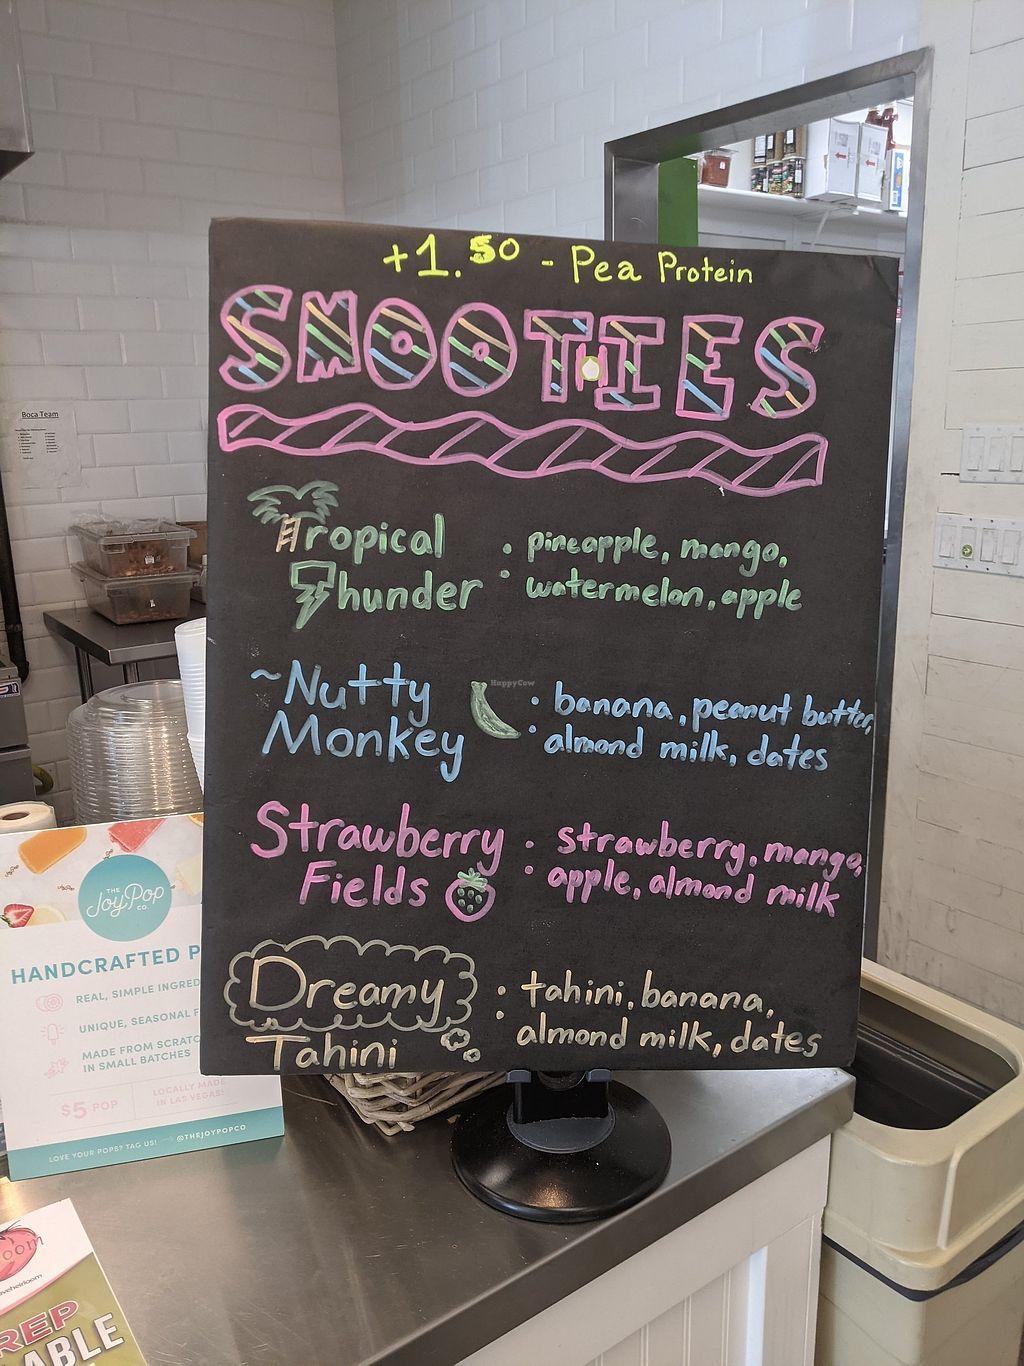 +1.50 - Pea Protein
SMOOTHIES
Tropical
Thunder
: pineapple, mango,
watermelon, apple
~Nutty
Monkey
: banana, peanut butter,
almond milk, dates
HappyCow
Strawberry
Fields
: strawberry, mango,
apple, almond milk
Dreamy
Tahini
: tahini, banana,
almond milk, dates
Boca Team
THE
JoyPop
CO.
HANDCRAFTED P
REAL, SIMPLE INGRED
UNIQUE, SEASONAL F
MADE FROM SCRATC
IN SMALL BATCHES
$5 POP
LOCALLY MADE
IN LAS VEGAS!
LOVE YOUR POPS? TAG US! @THEJOYPOPCO
oom
REP
ABLE